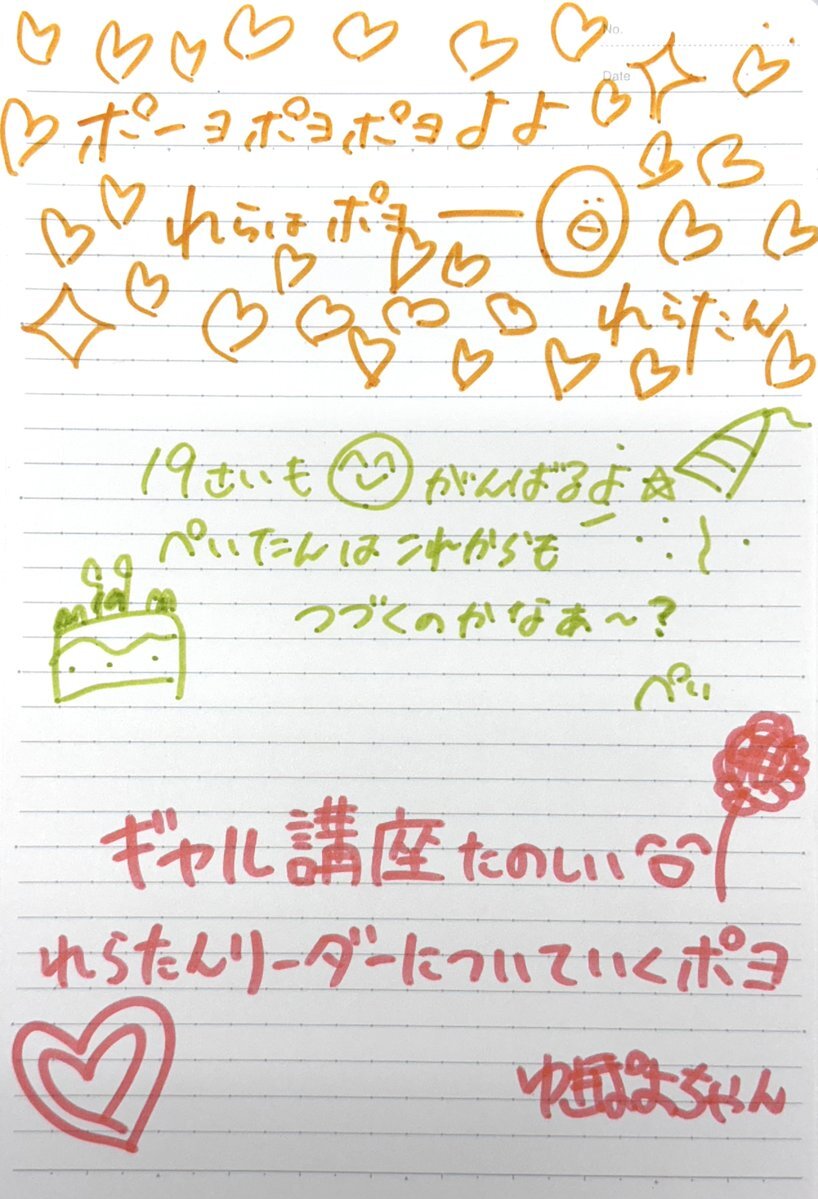 No.
Date
ポーヨポヨポヨよよ
れらはポヨー
れらたん
19さいもがんばるよ☆
ぺいたんはこれからも
つづくのかなぁ〜?
ぺい
ギャル講座たのしい
れらたんリーダーについていくポヨ
ゆきぽよちゃん